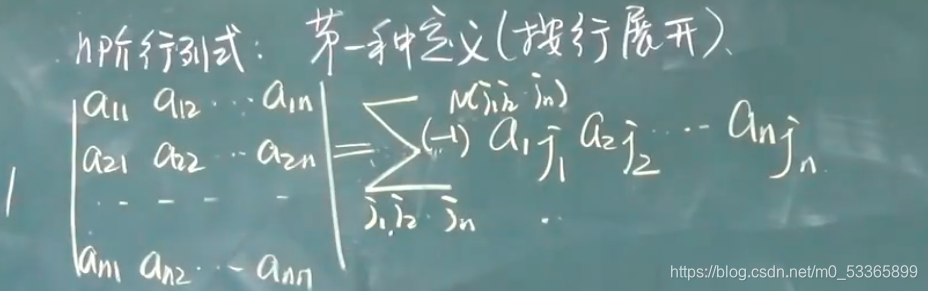 n阶行列式：第一种定义(按行展开)、
| a11 a12 ··· a1n |
| a21 a22 ··· a2n | = ∑_{j1,j2·jn} (-1)^{N(j1j2·jn)} a1j1 a2j2 ··· anjn
| - - - - |
| an1 an2 ··· ann |
https://blog.csdn.net/m0_53365899